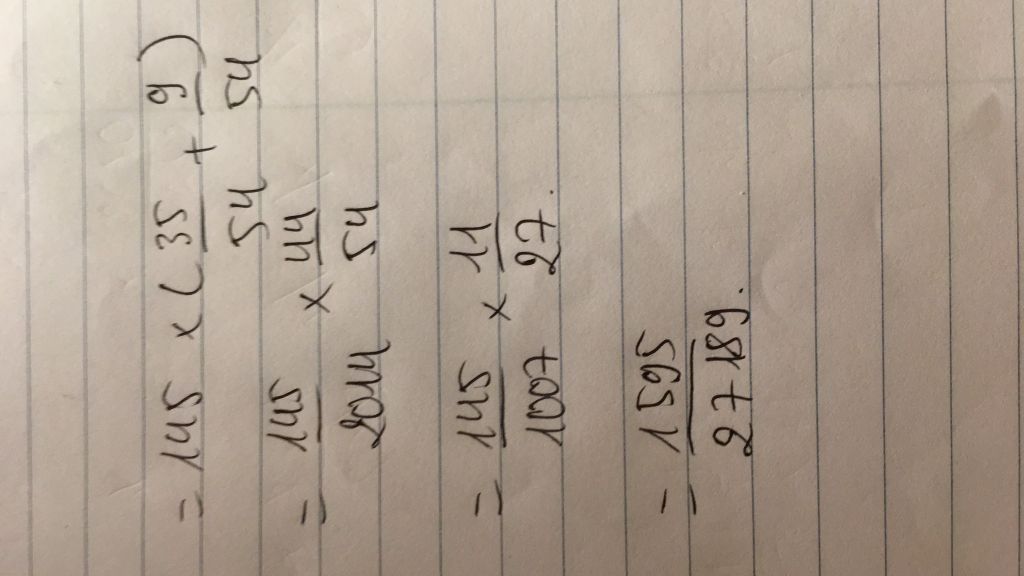 = 145 × (35/54 + 9/54)
= 145/2014 × 44/54
= 145/1007 × 11/27.
= 1595/27189.